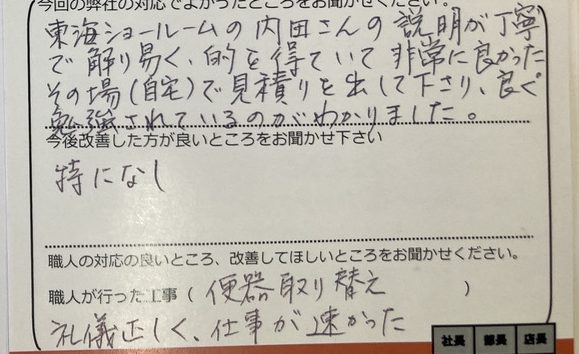 今回の弊社の対応でよかったところをお聞かせください。
東海ショールームの内田さんの説明が丁寧
で解り易く、的を得ていて非常に良かった
その場(自宅)で見積りを出して下さり、良く
勉強されているのがわかりました。
今後改善した方が良いところをお聞かせ下さい
特になし
職人の対応の良いところ、改善してほしいところをお聞かせください。
職人が行った工事( 便器取り替え )
礼儀正しく、仕事が速かった
社長 部長 店長